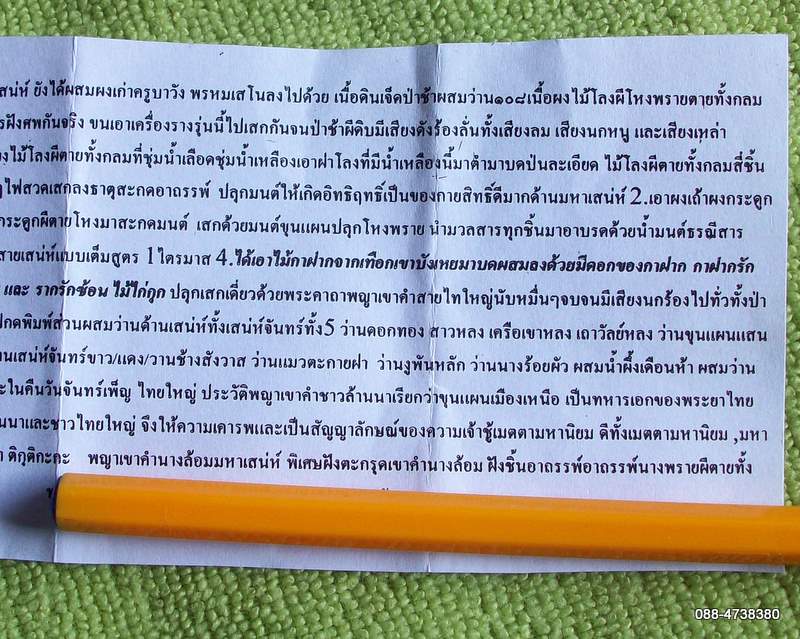 เสน่ห์ ยังได้ผสมผงเก่าครูบาวัง พรหมเสโนลงไปด้วย เนื้อดินเจ็ดป่าช้าผสมว่าน๑๐๘เนื้อผงไม้โลงผีโหงพรายตายทั้งกลม
รฝังศพกันจริง ขนเอาเครื่องรางรุ่นนี้ไปเสกกันจนป่าช้าผีดิบมีเสียงดังร้องลั่นทั้งเสียงลม เสียงนกหนู และเสียงเหล่า
งไม้โลงผีตายทั้งกลมที่ชุ่มน้ำเลือดชุ่มน้ำเหลืองเอาฝาโลงที่มีน้ำเหลืองนี้มาตำมาบดป่นละเอียด ไม้โลงผีตายทั้งกลมสี่ชิ้น
ไฟสวดเสกลงธาตุสะกดอาถรรพ์ ปลุกมนต์ให้เกิดอิทธิฤทธิ์เป็นของกายสิทธิ์ดีมากด้านมหาเสน่ห์ 2.เอาผงเถ้าผงกระดูก
กระดูกผีตายโหงมาสะกดมนต์ เสกด้วยมนต์ขุนแผนปลุกโหงพราย นำมวลสารทุกชิ้นมาอาบรดด้วยน้ำมนต์ธรณีสาร
สายเสน่ห์แบบเต็มสูตร 1ไตรมาส 4.ได้เอาไม้กาฝากจากเทือกเขาบังเหยมาบดผสมลงด้วยมีดอกของกาฝาก กาฝากรัก
และ รากรักซ้อน ไม้ไก่กุก ปลุกเสกเดี่ยวด้วยพระคาถาพญาเขาคำสายไทใหญ่นับหมื่นๆจบจนมีเสียงนกร้องไปทั่วทั้งป่า
ปกดพิมพ์ส่วนผสมว่านด้านเสน่ห์ทั้งเสน่ห์จันทร์ทั้ง5 ว่านดอกทอง สาวหลง เครือเขาหลง เถาวัลย์หลง ว่านขุนแผนแสน
นเสน่ห์จันทร์ขาว/แดง/วานช้างสังวาส ว่านแมวตะกายฝา ว่านงูพันหลัก ว่านนางร้อยผัว ผสมน้ำผึ้งเดือนห้า ผสมว่าน
ะในคืนวันจันทร์เพ็ญ ไทยใหญ่ ประวัติพญาเขาคำชาวล้านนาเรียกว่าขุนแผนเมืองเหนือ เป็นทหารเอกของพระยาไทย
นนาและชาวไทยใหญ่ จึงให้ความเคารพและเป็นสัญญาลักษณ์ของความเจ้าชู้เมตตามหานิยม ดีทั้งเมตตามหานิยม ,มหา
า ติกุติกะกะ พญาเขาคำนางล้อมมหาเสน่ห์ พิเศษฝังตะกรุดเขาคำนางล้อม ฝังชิ้นอาถรรพ์อาถรรพ์นางพรายผีตายทั้ง
088-4738380